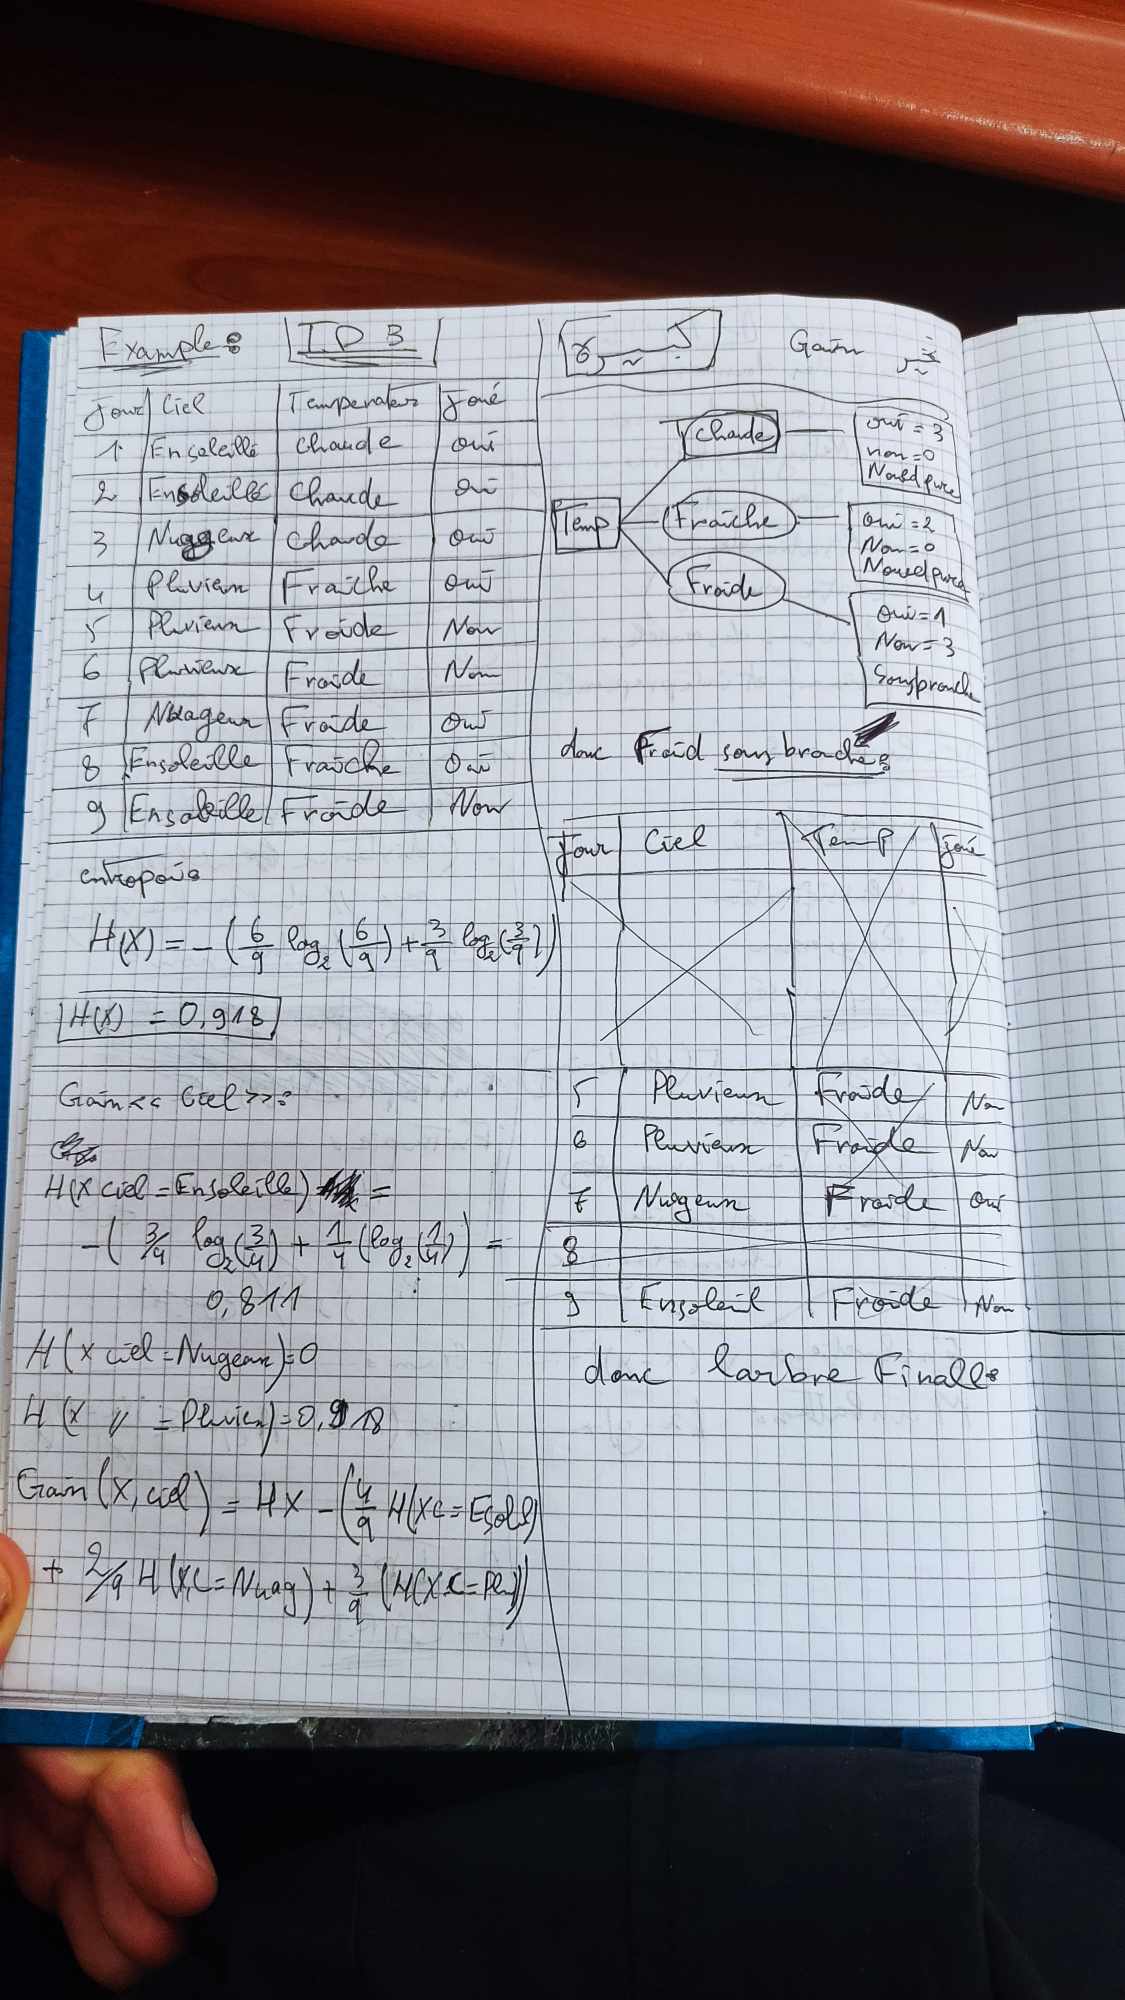 Example:
I D 3
Jour Ciel Temperateur Joué
1 Ensoleillé chaude oui
2 Ensoleillé Chaude oui
3 Nuageux Chaude oui
4 Pluvieux Fraîche oui
5 Pluvieux Froide Non
6 Pluvieux Froide Non
7 Nuageux Froide oui
8 Ensoleille Fraiche Oui
9 Ensoleille Froide Non
H(X) = - (6/9 log2 (6/9) + 3/9 log2 (3/9))
H(X) = 0,918
Gain << Ciel >> :
H(X ciel = Ensoleille) =
- ( 3/4 log2(3/4) + 1/4 (log2(1/4)) =
0,811
H(X ciel = Nugeax) = 0
H(X // = Pluvieu) = 0,918
Gain (X, ciel) = HX - (4/9 H(XC = Esoll)
+ 2/9 H(X,C = Nuag) + 3/9 (H(X C = Plu))
Gain
Temp
Chaude
oui = 3
non = 0
Noued pure
Fraîche
oui = 2
Non = 0
Noued pure
Froide
Oui = 1
Non = 3
Sousbranche
donc Froid sous branche:
Jour Ciel Temp joué
5 Pluvieux Froide Non
6 Pluvieux Froide Non
7 Nuageux Froide oui
8
9 Ensoleil Froide Non
donc larbre Finall: